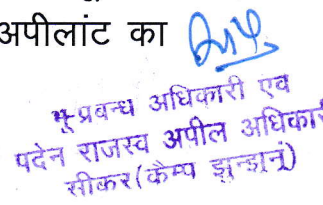 अपीलांट का
भू-प्रबन्ध अधिकारी एवं
पदेन राजस्व अपील अधिकारी
सीकर(कैम्प झुन्झुनूं)